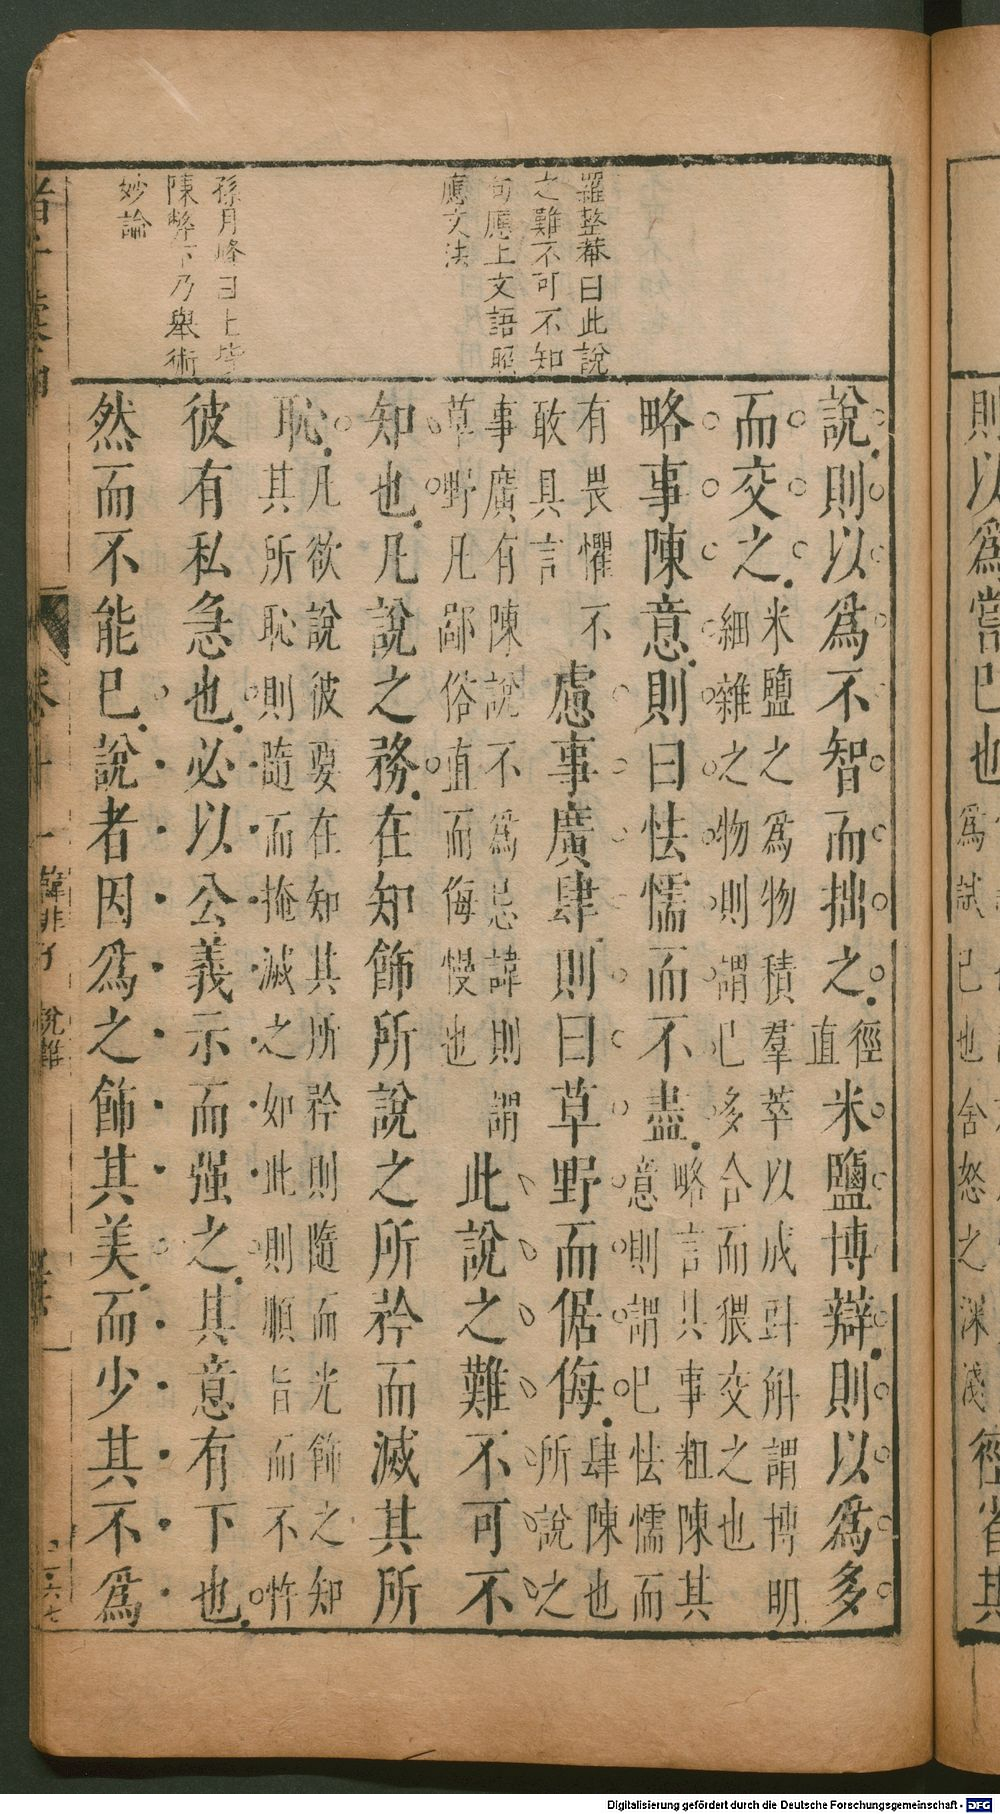 則以爲嘗已也
爲試
已也舍怒之深淺
徑省其
羅整菴曰此說
之難不可不知
句應上文語照
應文法
孫月峰曰上皆
陳弊下乃舉術
妙論
說則以爲不智而拙之徑直米鹽博辯則以爲多
而交之米鹽之爲物積羣萃以成斗斛謂博明
細雜之物則謂已多合而猥交之也
略事陳意則曰怯懦而不盡略言其事粗陳其
意則謂已怯懦而
有畏懼不敢具言慮事廣肆則曰草野而倨侮肆陳也
所說之
事廣有陳說不爲忌諱則謂
草野凡鄙俗直而侮慢也此說之難不可不
知也凡說之務在知飾所說之所矜而滅其所
恥凡欲說彼要在知其所矜則隨而光飾之知
其所恥則隨而掩滅之如此則順旨而不忤
彼有私急也必以公義示而强之其意有下也
然而不能已說者因爲之飾其美而少其不爲
韓非子 說難
Digitalisierung gefördert durch die Deutsche Forschungsgemeinschaft - DFG